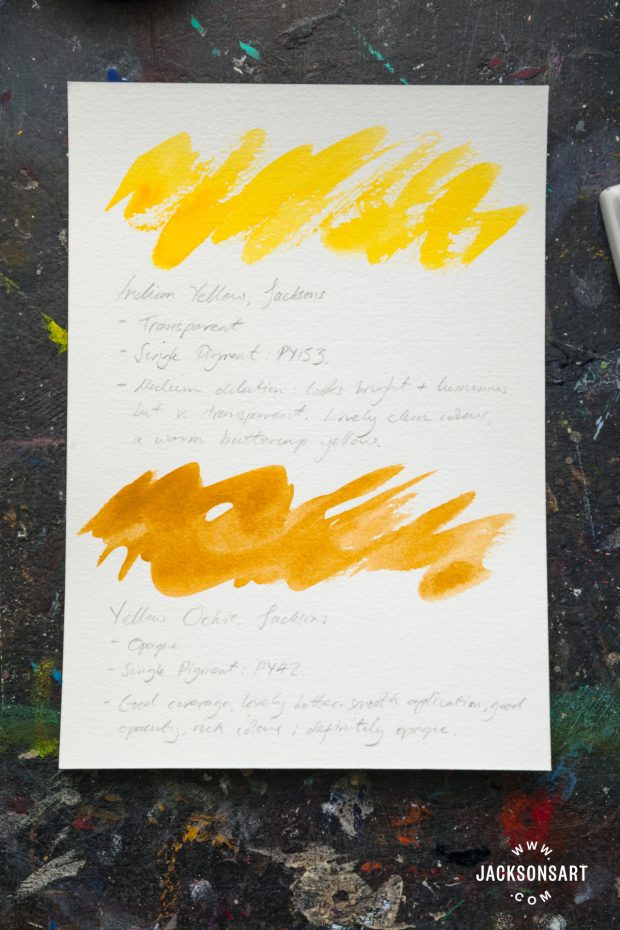 Indian Yellow, Jacksons
- Transparent
- Single Pigment: PY153.
- Medium dilution: looks bright + luminous
but v. transparent. Lovely clean colour,
a warm buttercup yellow.
Yellow Ochre, Jacksons
- Opaque
- Single Pigment: PY42
- Good coverage, lovely butter-smooth application, good
opacity, rich colour, definitely opaque.
WWW.
JACKSONSART
.COM